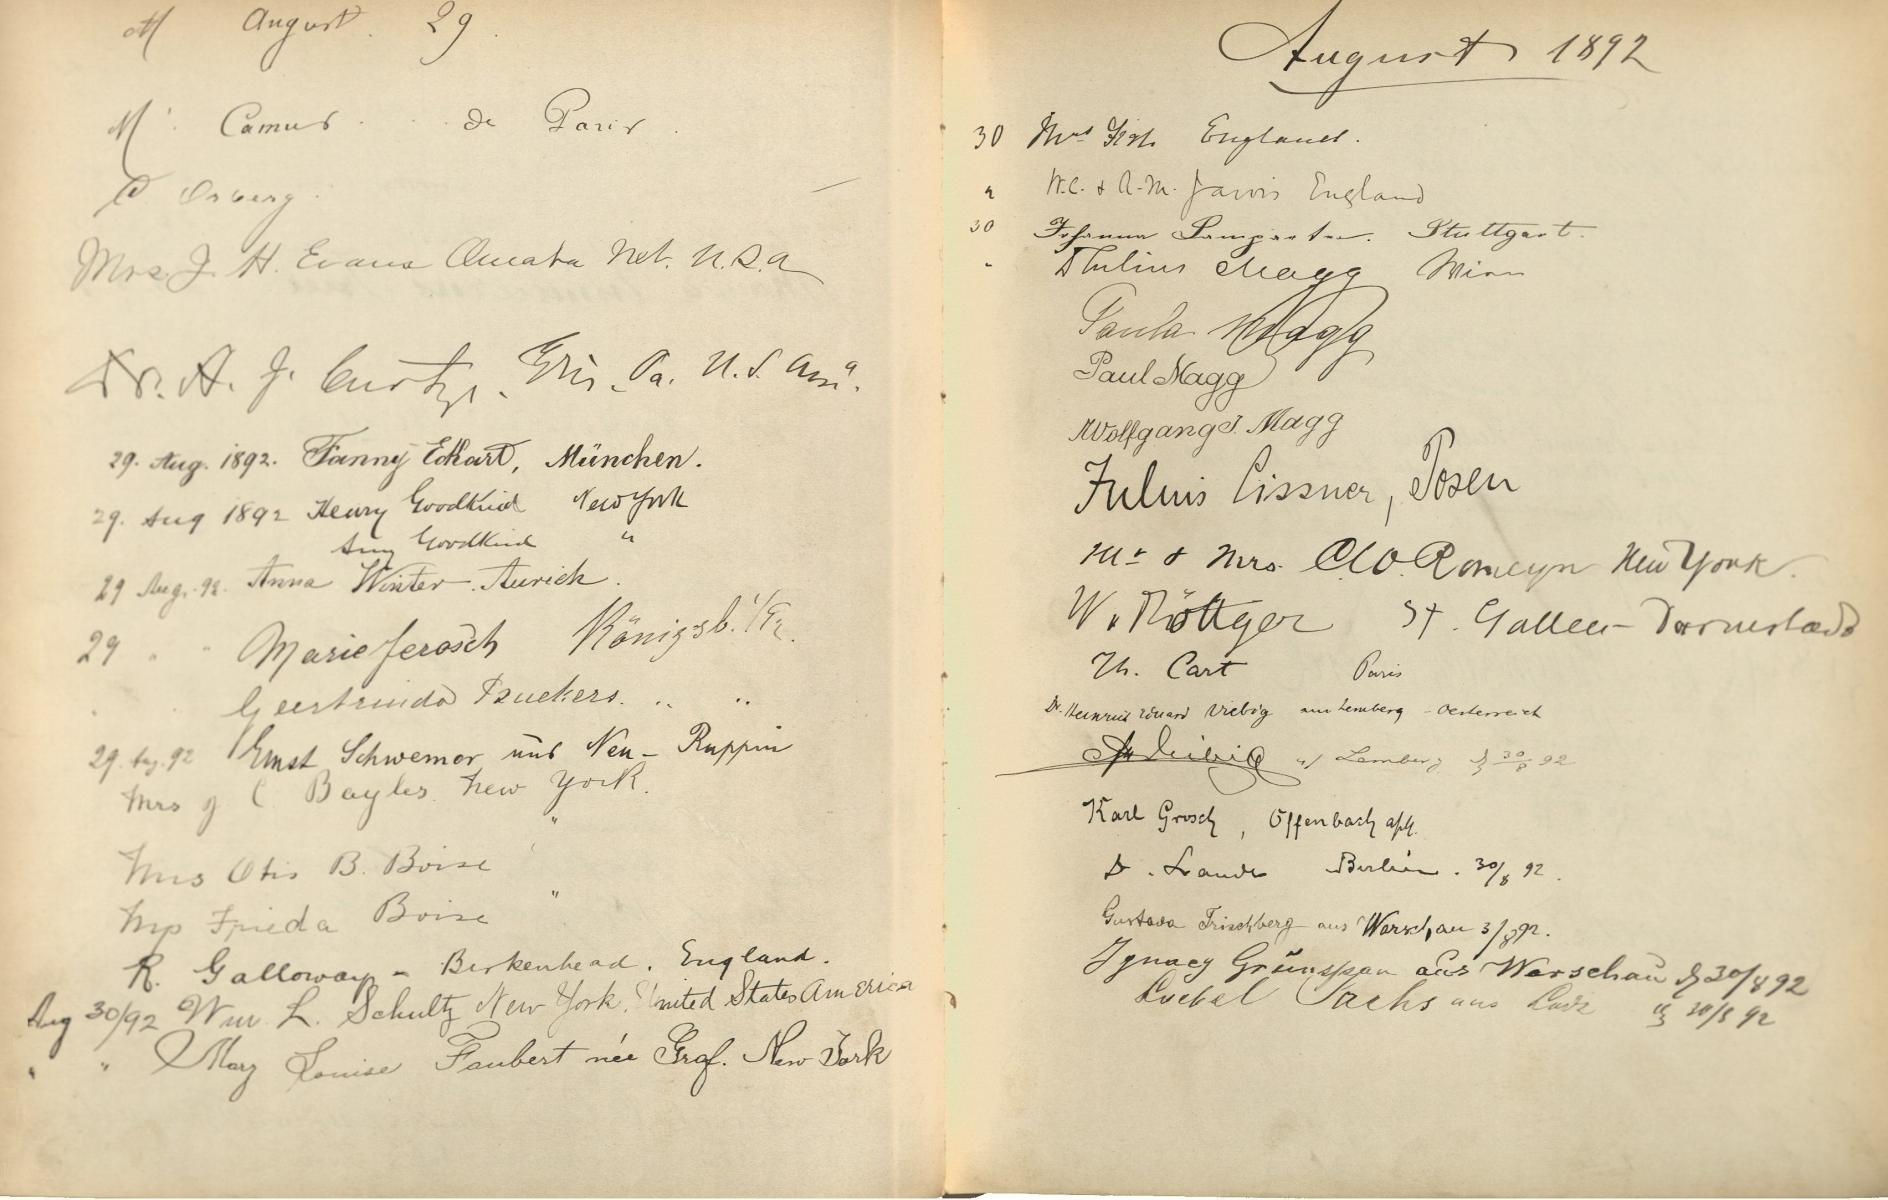 M August 29.
M. Camus de Paris
Mrs. J. H. Evans Omaha Neb. U.S.A
Dr. A. J. Curtze. Erie. Pa. U.S. Am.
29. Aug. 1892. Fanny Eckart, München.
29. Aug 1892 Henry Goodkind New York
Amy Goodkind "
29 Aug. 92. Anna Winter. Aurich.
29 " " Marie Jerosch Königsb. i/Pr.
29. Aug. 92 Ernst Schwemer und Neu-Ruppin
Mrs J C Bayles New York.
Mrs Otis B. Boise "
Frieda Boise "
R. Galloway - Birkenhead. England.
Aug 30/92 Wm. L. Schultz New York. United States America
" " Mary Louise Faubert née Graf. New York
August 1892
30 Mrs England.
" W.C. & A.M. Jarvis England
30 Johanna Stuttgart.
" Julius Magg Wien
Paula Magg
Paul Magg
Wolfgang J. Magg
Julius Lissner, Posen
Mr & Mrs. Romeyn New York.
W. v. Röttger St. Gallen - Darmstadt
Th. Cart Paris
Dr. Heinrich Eduard aus Lemberg - Oesterreich
Lemberg 30/8 92
Karl Grosch, Offenbach a/M.
Berlin. 30/8 92.
Gustawa Frischberg aus Warschau 3/8 92.
Ignacy Grünspan aus Warschau 30/8 92
Sachs aus Lodz 30/8 92